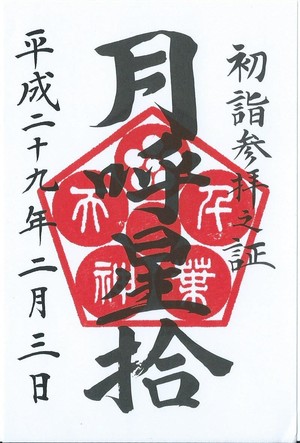 初詣参拝之証
月呼星拾
平成二十九年二月三日
千葉
天神